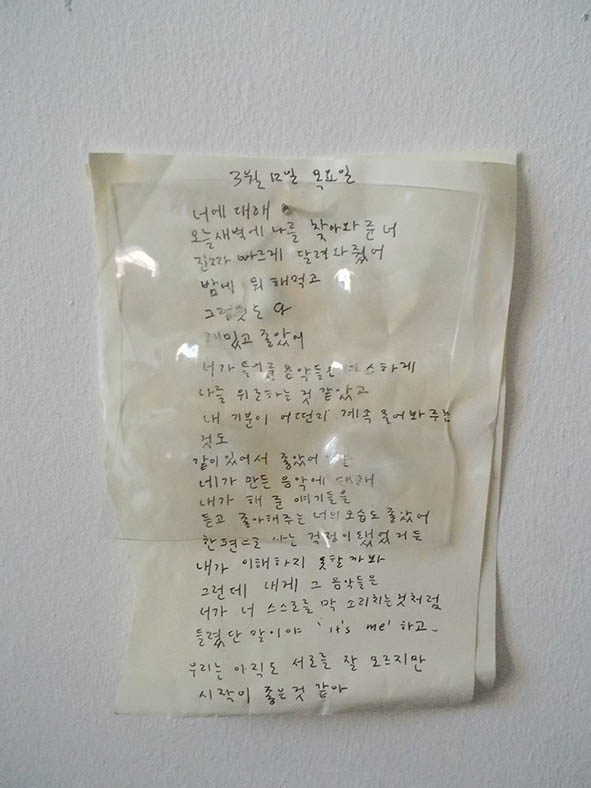 3월 12일 목요일
너에 대해
오늘 새벽에 나를 찾아와 준 너
진짜 빠르게 달려와줬어
밤에 뭐 해먹고
그런것도 다
재밌고 좋았어
너가 들려준 음악들은
나를 위로하는 것 같았고
내 기분이 어떤지 계속 물어봐 주는
것도
같이 있어서 좋았어
네가 만든 음악에 대해
내가 해 준 얘기들을
듣고 좋아해주는 너의 모습도 좋았어
한편으로 나는 걱정이 됐었거든
내가 이해하지 못할까봐
그런데 내게 그 음악들은
너가 너 스스로를 막 소리치는것처럼
들렸단 말이야 'it's me' 하고_
우리는 아직도 서로를 잘 모르지만
시작이 좋은것 같아